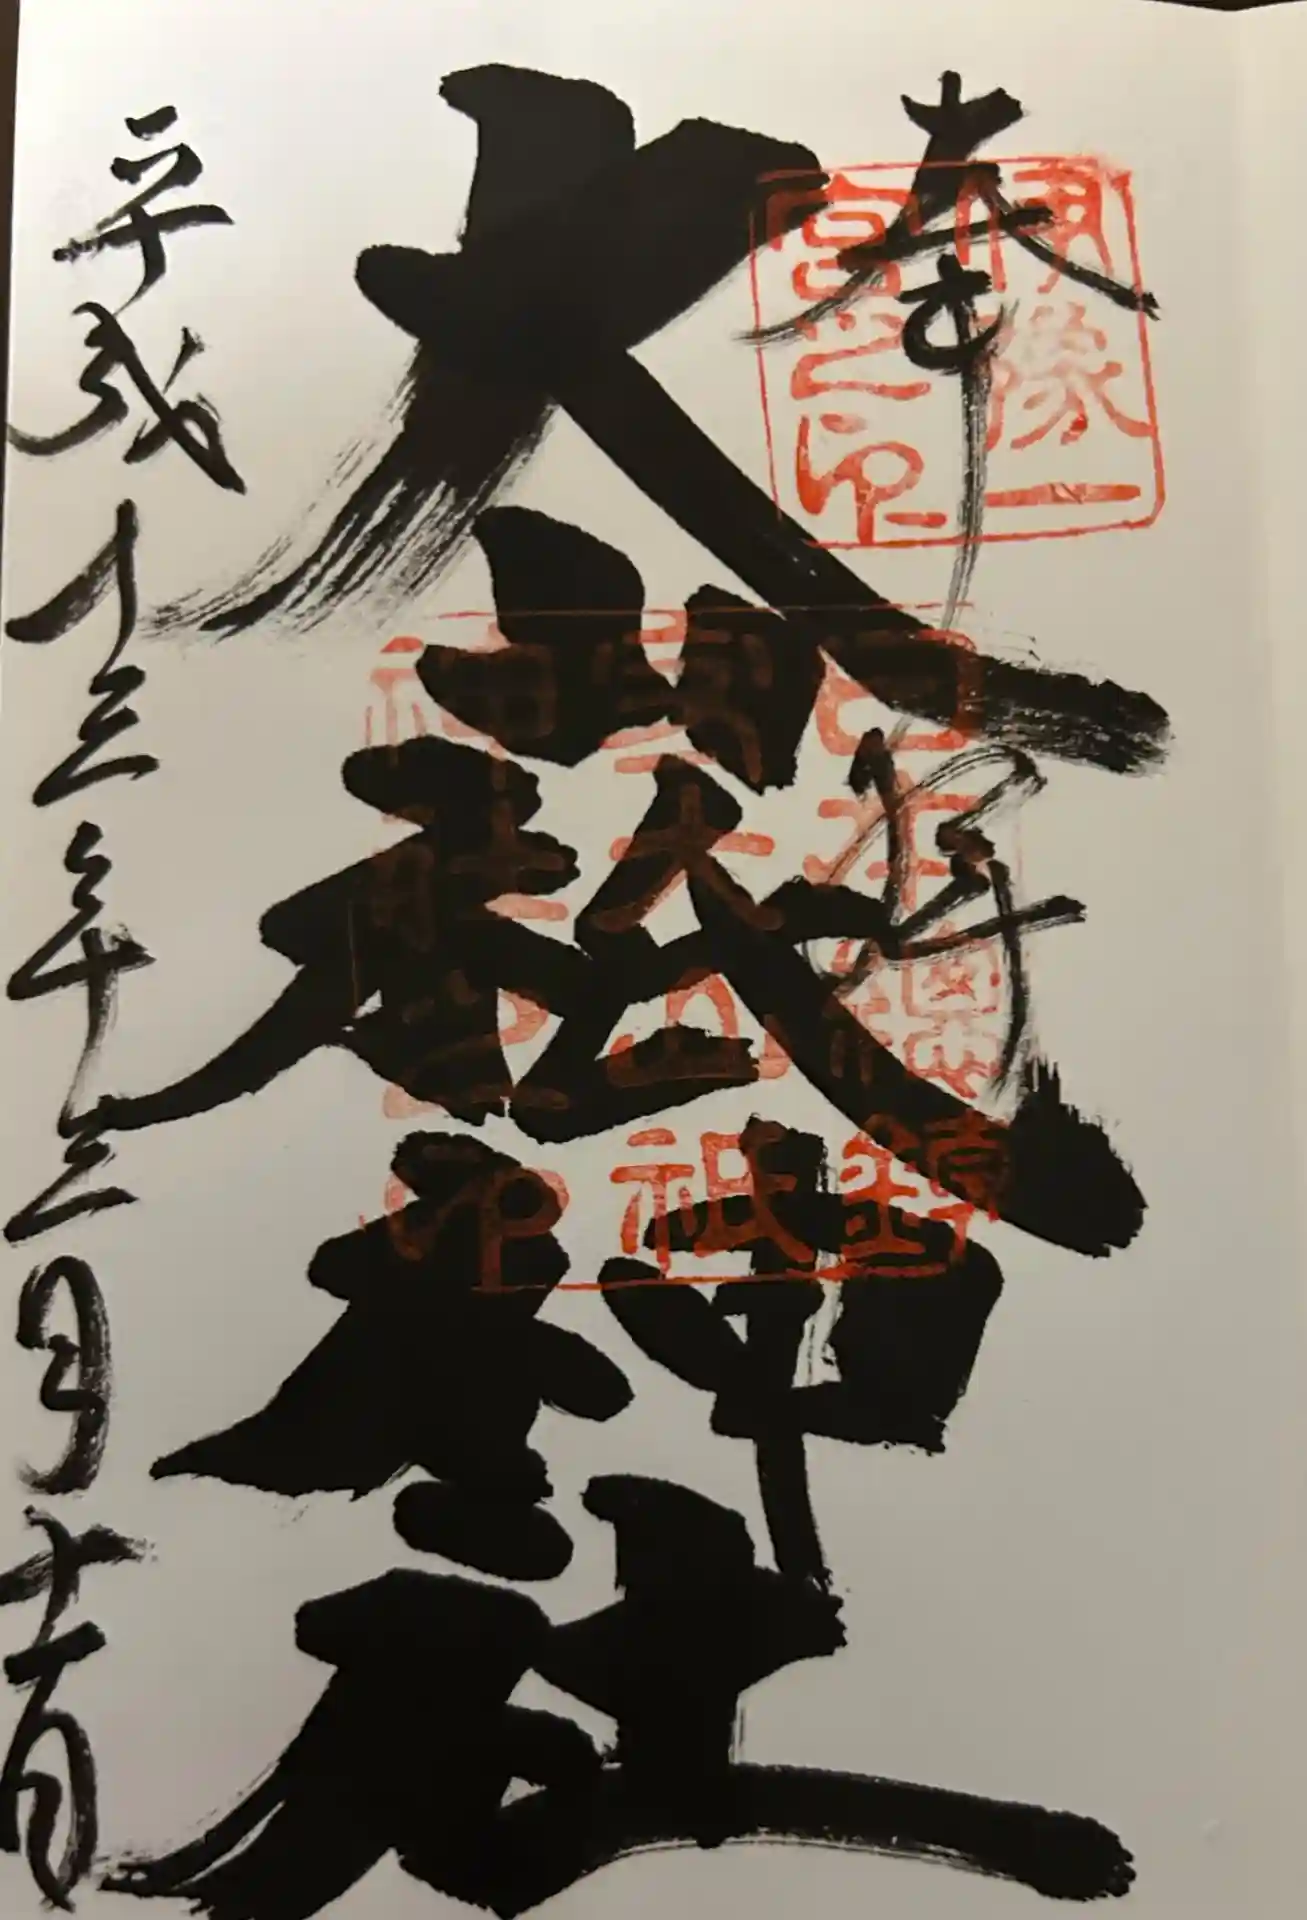 奉拝
伊豫一
宮之印
大山祇神社
日本總鎮
守大山祇
神社之印
平成十三年三月十一日